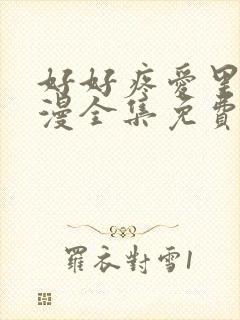 好好疼愛里
漫全集免費
羅衣對雪1